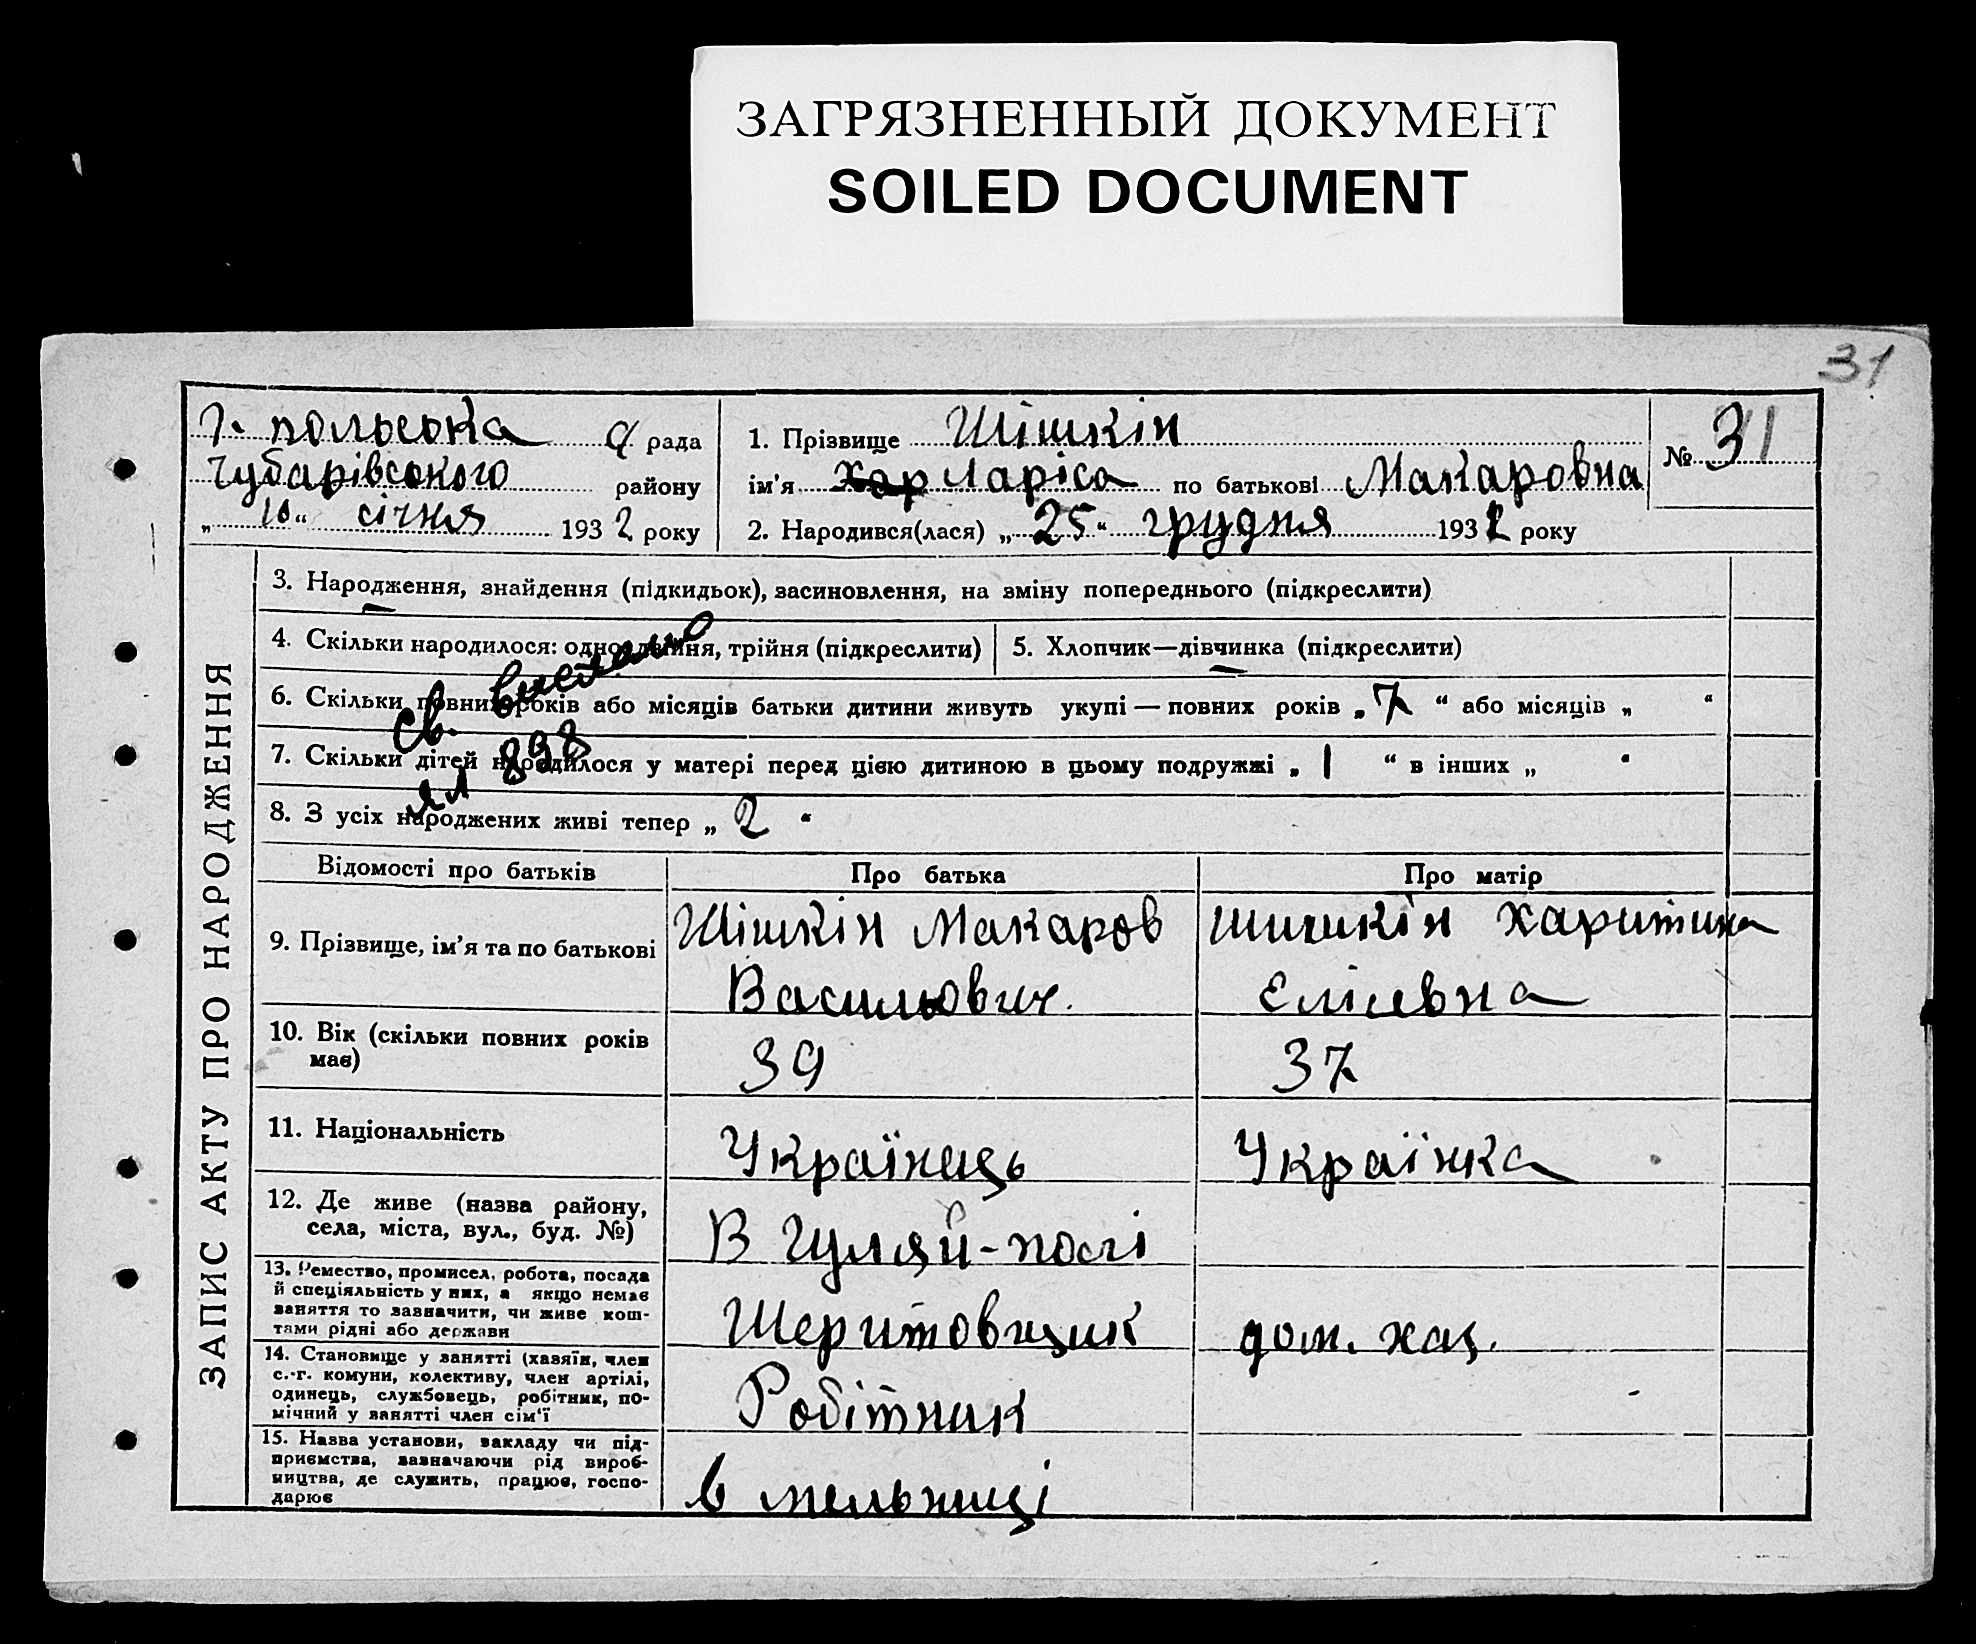 ЗАГРЯЗНЕННЫЙ ДОКУМЕНТ
SOILED DOCUMENT
31
Г. польська рада
Чубарівського району
„ 10 “ січня 1932 року
1. Прізвище Шішкін
ім'я Хар Ларіса по батькові Макаровна
№ 31
2. Народився(лася) „ 25 “ грудня 193 року
ЗАПИС АКТУ ПРО НАРОДЖЕННЯ
3. Народження, знайдення (підкидьок), засиновлення, на зміну попереднього (підкреслити)
4. Скільки народилося: одно, двійня, трійня (підкреслити)
5. Хлопчик—дівчинка (підкреслити)
6. Скільки повних років або місяців батьки дитини живуть укупі — повних років „ 7 “ або місяців „ “
7. Скільки дітей народилося у матері перед цією дитиною в цьому подружжі „ 1 “ в інших „ “
8. З усіх народжених живі тепер „ 2 “
Св. видано
898
Відомості про батьків
Про батька
Про матір
9. Прізвище, ім'я та по батькові
Шішкін Макаров
Васильович.
Шишкін Харитина
Елісевна
10. Вік (скільки повних років
має)
39
37
11. Національність
Українець
Українка
12. Де живе (назва району,
села, міста, вул., буд. №)
В Гуляй-полі
13. Ремество, промисел, робота, посада
й спеціяльність у них, а якщо немає
заняття то зазначити, чи живе кош-
тами рідні або держави
Шеритовщик
дом. хаз.
14. Становище у занятті (хазяїн, член
с.-г. комуни, колективу, член артілі,
одинець, службовець, робітник, по-
мічний у занятті член сім'ї
Робітник
15. Назва установи, закладу чи під-
приємства, зазначаючи рід вироб-
ництва, де служить, працює, госпо-
дарює
в мельниці